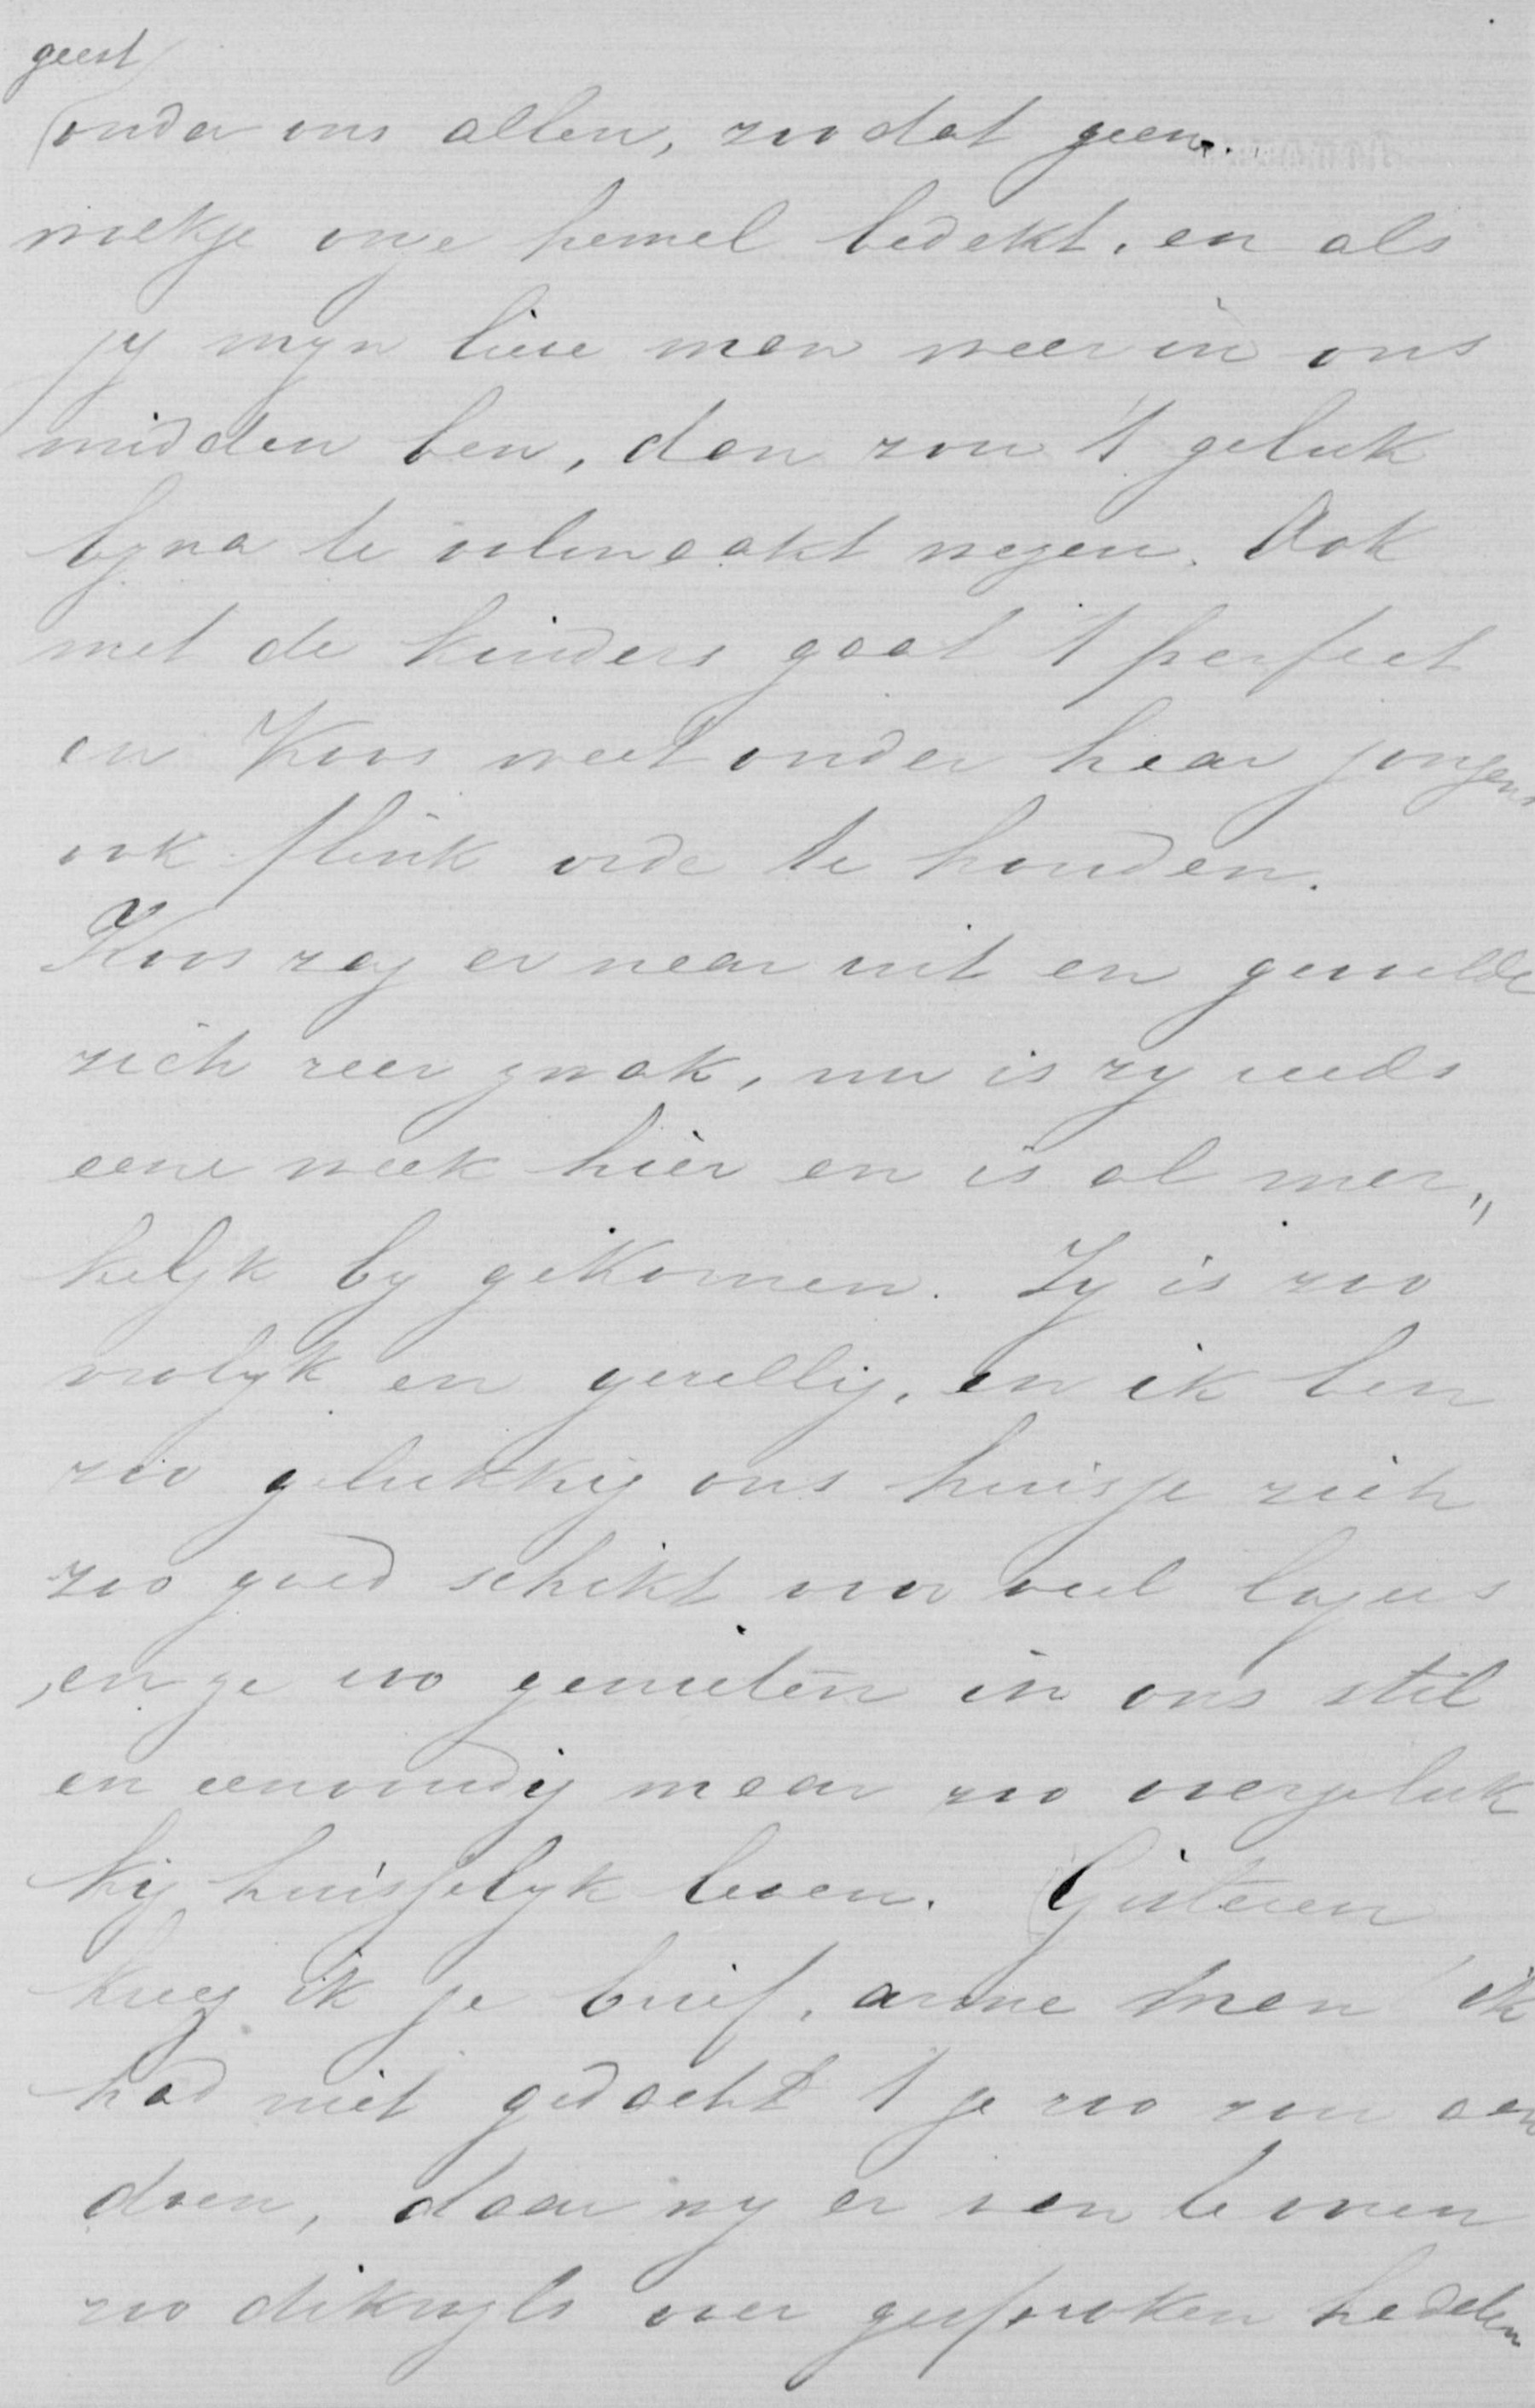 geest
onder ons allen, zoodat geen
wolkje onze hemel bedekt, en als
jy myn lieve man weer in ons
midden ben, dan zou 't geluk
byna te volmaakt wezen. Ook
met de kinders gaat 't perfect
en Koos weet onder haar jongens
ook flink orde te houden.
Koos zag er naar uit en gevoelde
zich zeer zwak, nu is zy reeds
eene week hier en is al mer„
kelyk by gekomen. Zy is zoo
vrolyk en gezellig, en ik ben
zoo gelukkig ons huisje zich
zoo goed schikt voor veel logees
en ze zoo genieten in ons stil
en eenvoudig maar zoo overgeluk
kig huisselyk leven. Gisteren
kreeg ik je brief, arme man ik
had niet gedacht 't je zoo zou aan
doen, daar wy er van te voren
zoo dikwyls over gesproken hadden